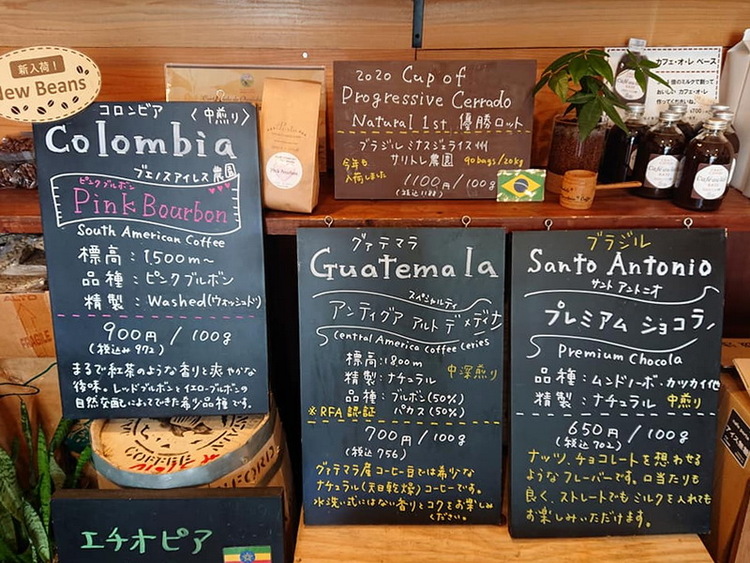 新入荷！
New Beans
コロンビア 〈中煎り〉
Colombia
ブエノスアイレス農園
ピンクブルボン
Pink Bourbon
South American Coffee
標高：1,500m～
品種：ピンクブルボン
精製：Washed(ウォッシュド)
900円 / 100g
(税込み972)
まるで紅茶のような香りと爽やかな
後味。レッドブルボンとイエローブルボンの
自然交配によってできた希少品種です。
エチオピア
2020 Cup of
Progressive Cerrado
Natural 1st 優勝ロット
ブラジル ミナスジェライス州
サリトレ農園 90bags/20kg
今年も
入荷しました
1100円/100g
(税込1188)
カフェ・オ・レ ベース
グァテマラ
Guatemala
スペシャルティ
アンティグア アルト デ メディナ
Central America coffee ceries
標高：1800m
精製：ナチュラル 中深煎り
品種：ブルボン(50%)
※RFA認証 パカス(50%)
700円/100g
(税込756)
グァテマラ産コーヒー豆では希少な
ナチュラル(天日乾燥)コーヒーです。
水洗い式にはない香りとコクをお楽しみ
ください。
ブラジル
Santo Antonio
サント アントニオ
プレミアム ショコラ
Premium Chocola
品種：ムンドノーボ・カツカイ他
精製：ナチュラル 中煎り
650円/100g
(税込702)
ナッツ、チョコレートを想わせる
ようなフレーバーです。口当たりも
良く、ストレートでもミルクを入れても
お楽しみいただけます。